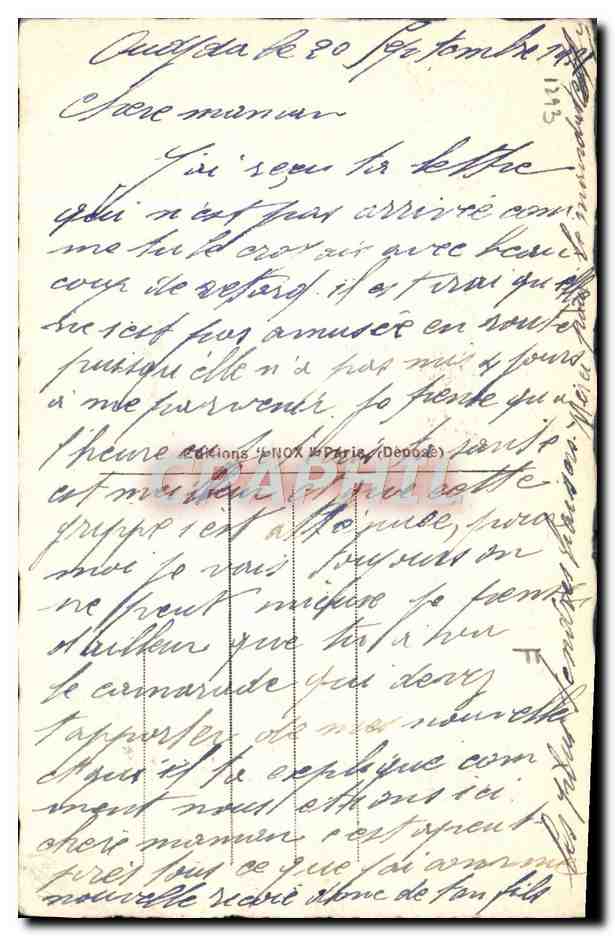 Oudjda le 20 Septembre
1293
Chere maman
J'ai reçu ta lettre
qui n'est pas arrivée com
me tu le croyais avec beau
coup de retard il est vrai qu'elle
ne s'est pas amusée en route
puisqu'elle n'a pas mis 4 jours
a me parvenir. Je pense qu'a
l'heure ta santé
est meilleur et que cette
grippe s'est attenuée, pour
moi je vais toujours on
ne peut mieux je pense
d'ailleur que tu a vu
le camarade qui devez
t'apporter de mes nouvelle
et qui il ta expliqué com
ment nous etions ici
chere maman c'est apeut
pres tous ce que j'ai comme
nouvelle recoie donc de ton fils
les plus tendres baisers. Merci pour le mandat
F
Editions "NOX" Paris. (Déposé)
CPAPHIL